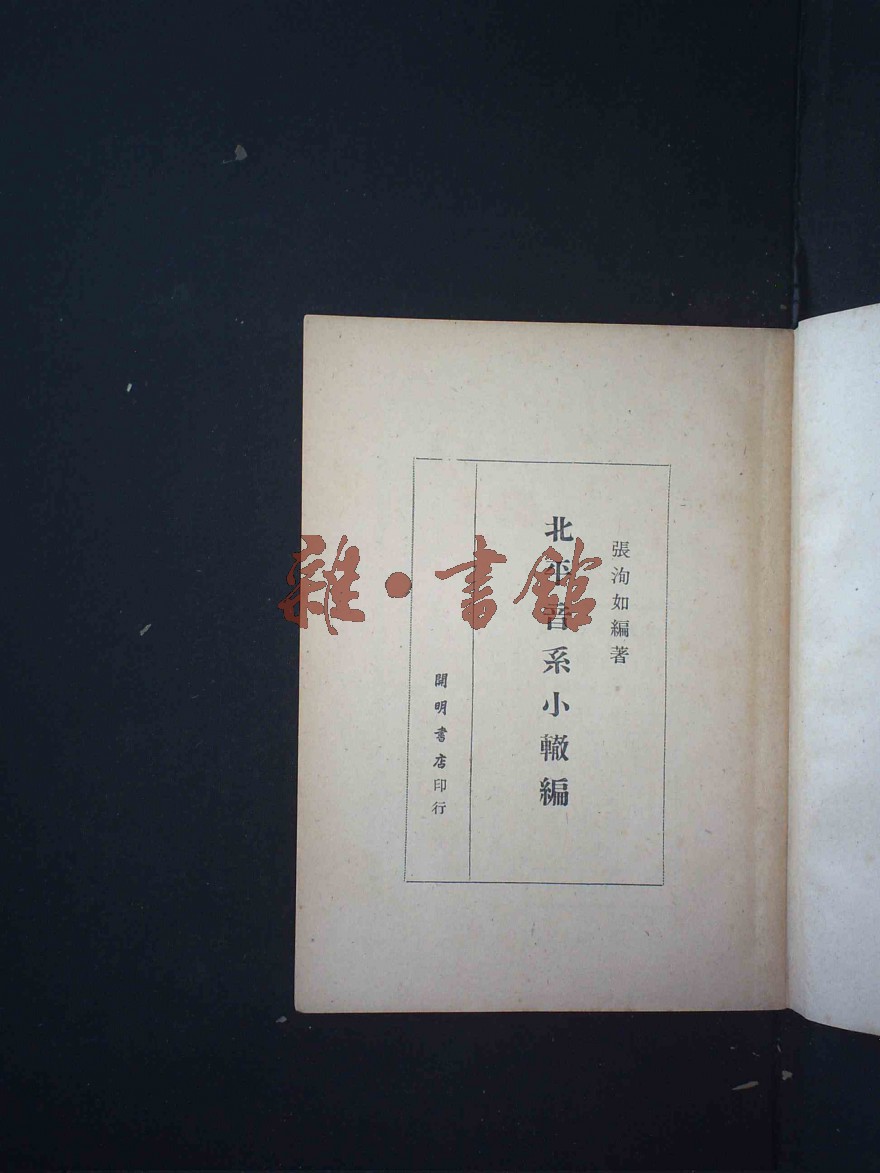 張洵如編著
北平音系小轍編
開明書店印行
雜·書館